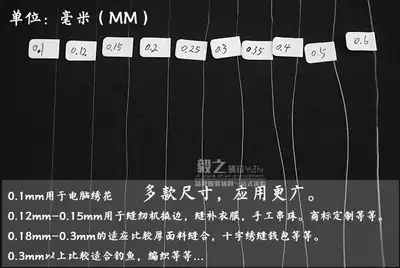 单位：毫米（MM）
0.1 0.12 0.15 0.2 0.25 0.3 0.35 0.4 0.5 0.6
毅之 辅料 YiZhi
多款尺寸，应用更广。
0.1mm用于电脑绣花
0.12mm-0.15mm用于缝纫机操边，缝补衣服，手工串珠。商标定制等等。
0.18mm-0.3mm的适应比较厚面料缝合，十字绣缝钱包等等。
0.3mm以上比较适合钓鱼，编织等等...